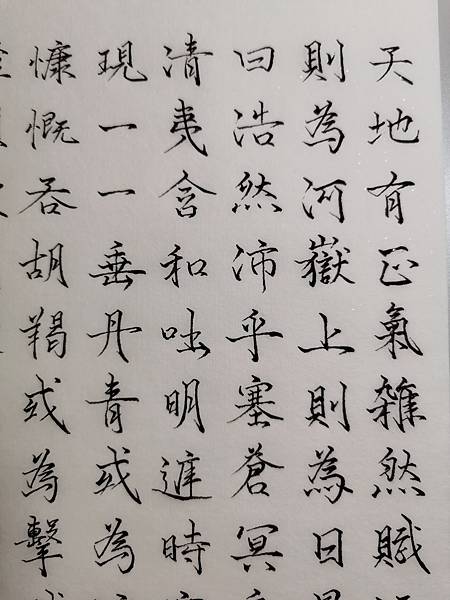 天地有正氣雜然賦
則為河嶽上則為日
曰浩然沛乎塞蒼冥
清夷含和吐明庭時
現一一垂丹青或為
慷慨吞胡羯或為擊